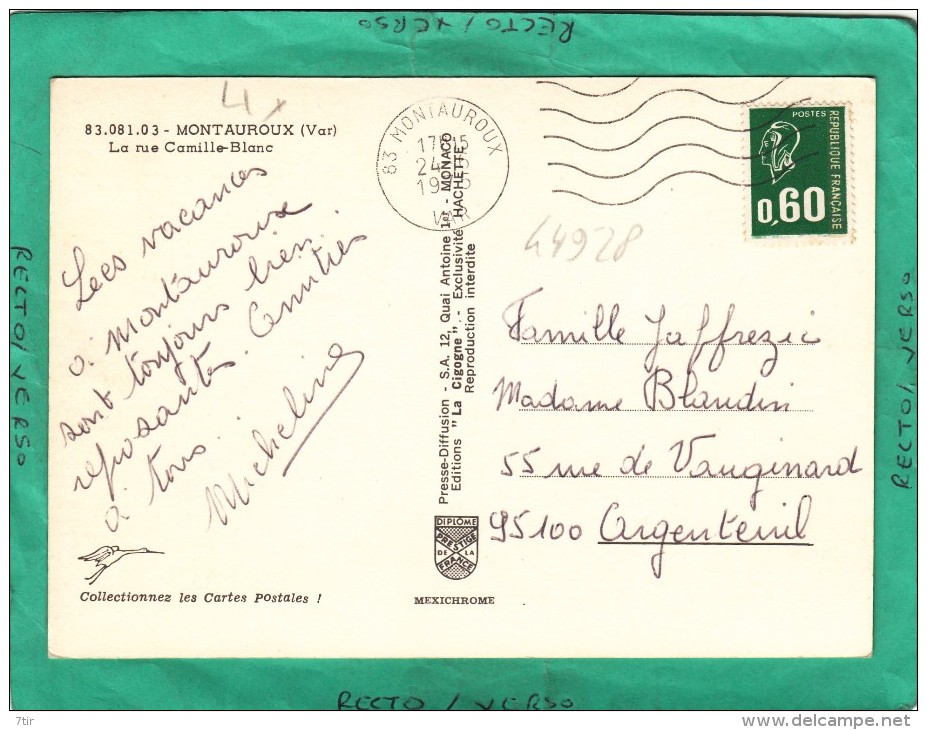 RECTO / VERSO
4x
83.081.03 - MONTAUROUX (Var)
La rue Camille-Blanc
Lees vacances
à Montauroux
sont toujours bien
reposants. Amitiés
à tous.
Micheline
Collectionnez les Cartes Postales !
83 MONTAUROUX
VAR
Presse-Diffusion - S.A. 12, Quai Antoine 1er - MONACO
Editions "La Cigogne". - Exclusivité HACHETTE
Reproduction interdite
DIPLÔME
PRESTIGE
DE LA
FRANCE
MEXICHROME
POSTES
REPUBLIQUE FRANÇAISE
0,60
44928
Famille Jaffrezic
Madame Blandin
55 rue de Vauginard
95100 Argenteuil
RECTO / VERSO
RECTO / VERSO
RECTO / VERSO
7tir
www.delcampe.net